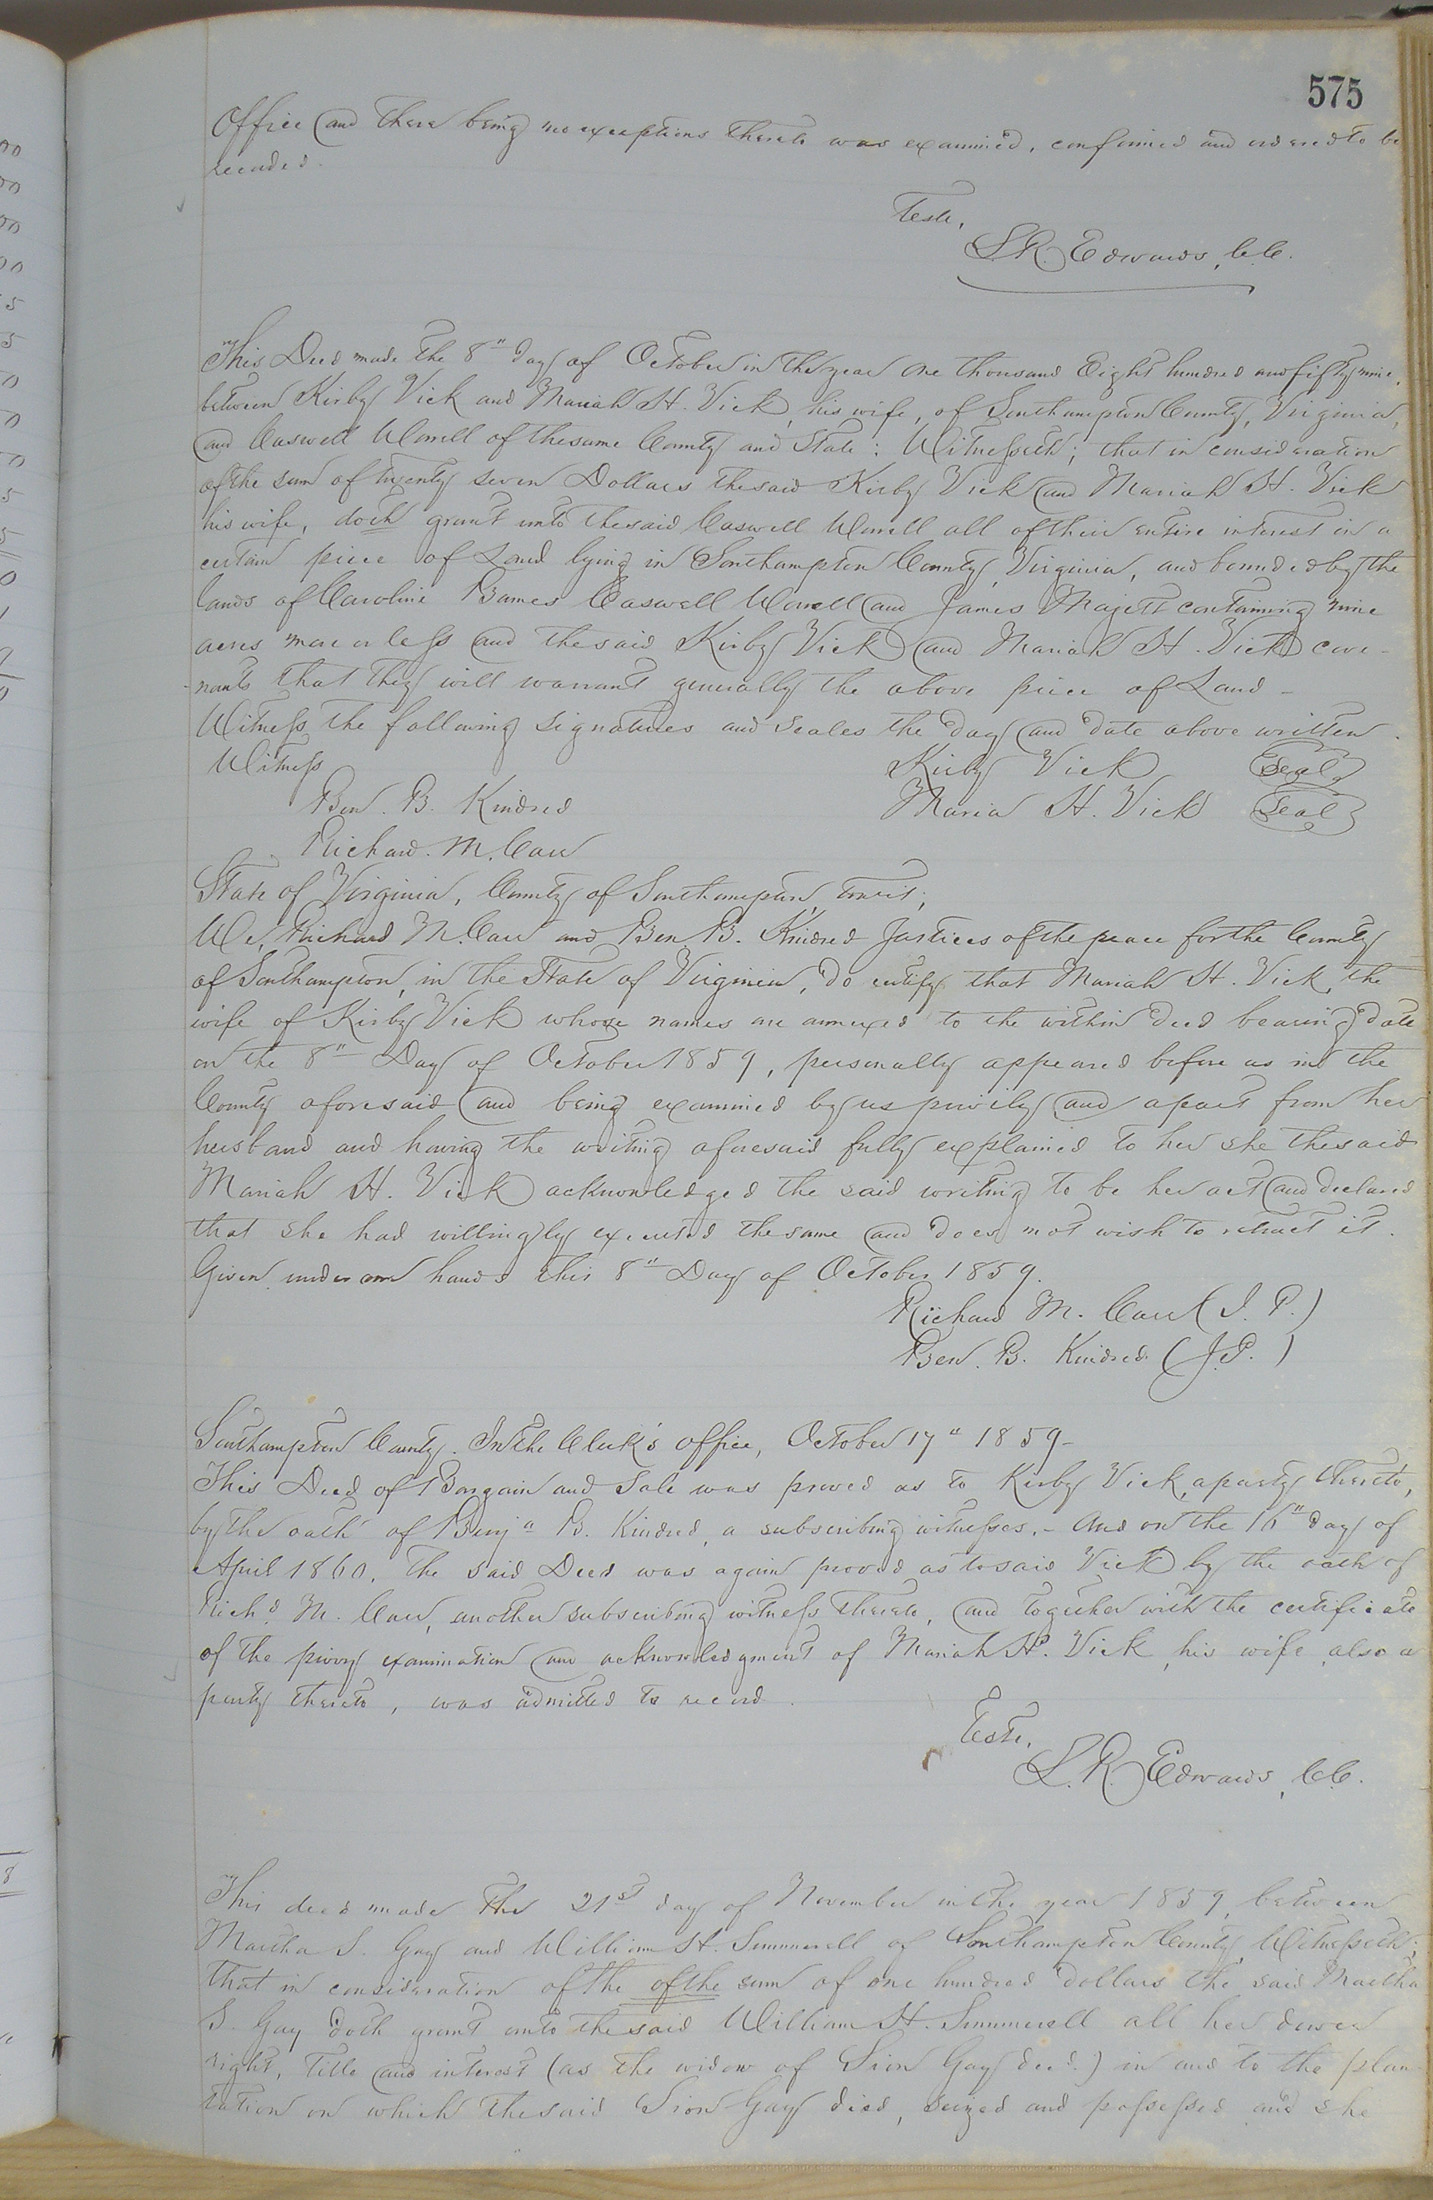 575
Office and there being no exceptions thereto was examined, confirmed and ordered to be
recorded.
Teste,
L. R. Edwards, C.C.
This Deed made the 8" day of October in the year One thousand Eight hundred and fifty nine,
between Kirby Vick and Mariah H. Vick, his wife, of Southampton County, Virginia,
and Caswell Worrell of the same County and State: Witnesseth; that in consideration
of the sum of twenty seven Dollars the said Kirby Vick and Mariah H. Vick
his wife, doth grant unto the said Caswell Worrell all of their entire interest in a
certain piece of Land lying in Southampton County, Virginia, and bounded by the
lands of Caroline Barnes Caswell Worrell and James Majett containing nine
acres more or less and the said Kirby Vick and Mariah H. Vick cove-
-nants that they will warrant generally the above piece of Land -
Witness the following signatures and seales the day and date above written.
Witness Kirby Vick Seal
Ben. B. Kindred Maria H. Vick Seal
Richard. M. Carr
State of Virginia, County of Southampton, towit;
We, Richard M. Carr and Ben. B. Kindred Justices of the peace for the County
of Southampton, in the State of Virginia, do certify that Mariah H. Vick, the
wife of Kirby Vick whose names are annexed to the within deed bearing date
on the 8" Day of October 1859, personally appeared before us in the
County aforesaid and being examined by us privily and apart from her
husband and having the writing aforesaid fully explained to her she the said
Mariah H. Vick acknowledged the said writing to be her act and declared
that she had willingly executed the same and does not wish to retract it.
Given under our hands this 8" Day of October 1859.
Richard M. Carr (J. P.)
Ben. B. Kindred (J.P.)
Southampton County. In the Clerk's office, October 17" 1859-
This Deed of Bargain and Sale was proved as to Kirby Vick, a party thereto,
by the oath of Benja B. Kindred, a subscribing witnesses.- And on the 16" day of
April 1860, The said Deed was again proved as to said Vick by the oath of
Richd M. Carr, another subscribing witness thereto, and together with the certificate
of the privy examination and acknowledgment of Mariah H. Vick, his wife, also a
party thereto, was admitted to record.
Teste,
L. R. Edwards, C.C.
This deed made the 21st day of November in the year 1859, between
Martha S. Gay and William H. Summerell of Southampton County, Witnesseth;
that in consideration of the of the sum of one hundred dollars the said Martha
S. Gay doth grant unto the said William H. Summerell all her dower
right, title and interest (as the widow of Sion Gay decd.) in and to the plan-
tation on which the said Sion Gay died, seized and possessed and she